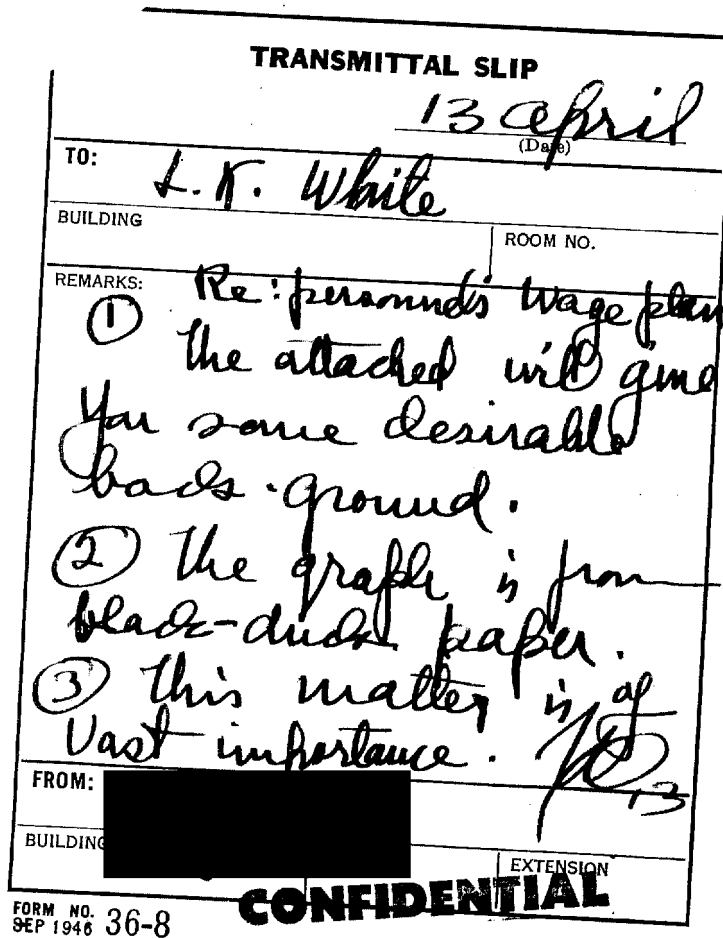 TRANSMITTAL SLIP
13 April
(Date)
TO:
L. K. White
BUILDING
ROOM NO.
REMARKS:
Re: personnel's Wage plan
① The attached will give
you some desirable
back-ground.
② The graph is from
black-duck paper.
③ This matter is of
Vast importance.
13
FROM:
BUILDING
EXTENSION
CONFIDENTIAL
FORM NO.
SEP 1946 36-8